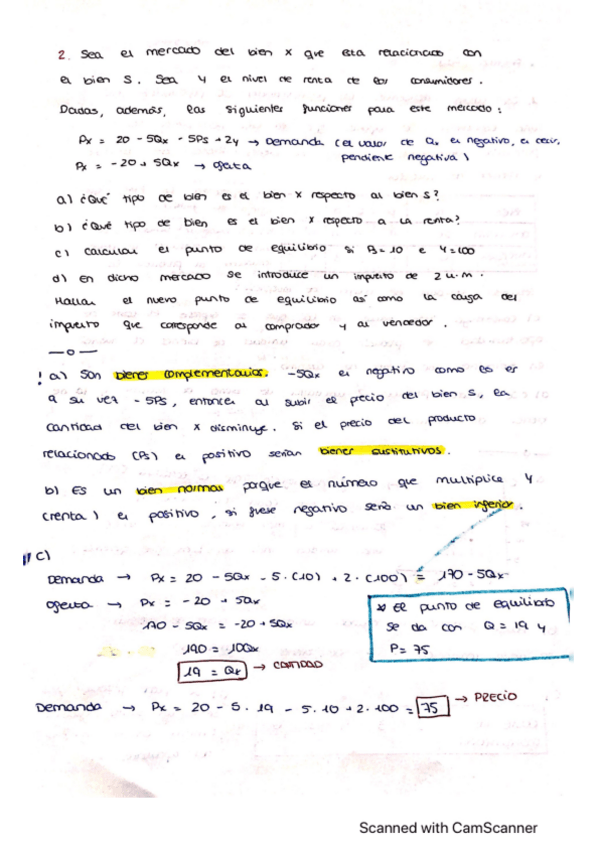 2. Sea el mercado del bien x que esta relacionado con
el bien S. Sea y el nivel de renta de los consumidores.
Dadas, además, las siguientes funciones para este mercado:
Px = 20 - 5Qx - 5Ps + 2y → Demanda (el valor de Qx es negativo, es decir,
pendiente negativa)
Px = -20 + 5Qx → oferta
a) ¿Qué tipo de bien es el bien x respecto al bien S?
b) ¿Qué tipo de bien es el bien x respecto a la renta?
c) Calcular el punto de equilibrio si Ps=10 e Y=100
d) En dicho mercado se introduce un impuesto de 2 u.m.
Hallar el nuevo punto de equilibrio así como la carga del
impuesto que corresponde al comprador y al vendedor.
—o—
! a) Son bienes complementarios. -5Qx es negativo como lo es
a su vez -5Ps, entonces al subir el precio del bien S, la
cantidad del bien x disminuye. Si el precio del producto
relacionado (Ps) es positivo serían bienes sustitutivos.
b) Es un bien normal porque el número que multiplica Y
(renta) es positivo, si fuese negativo sería un bien inferior.
c)
Demanda → Px = 20 - 5Qx - 5·(10) + 2·(100) = 170 - 5Qx
Oferta → Px = -20 + 5Qx
170 - 5Qx = -20 + 5Qx
190 = 10Qx
19 = Qx → CANTIDAD
* El punto de equilibrio
se da con Q = 19 y
P = 75
Demanda → Px = 20 - 5·19 - 5·10 + 2·100 = 75 → PRECIO
Scanned with CamScanner